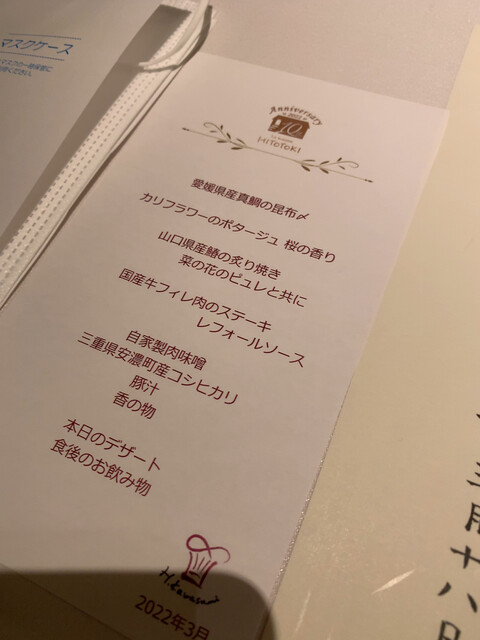 マスクケース
Anniversary
10
HiToToKI
愛媛県産真鯛の昆布〆
カリフラワーのポタージュ 桜の香り
山口県産鰆の炙り焼き
菜の花のピュレと共に
国産牛フィレ肉のステーキ
レフォールソース
自家製肉味噌
三重県安濃町産コシヒカリ
豚汁
香の物
本日のデザート
食後のお飲み物
2022年3月
三月十八日